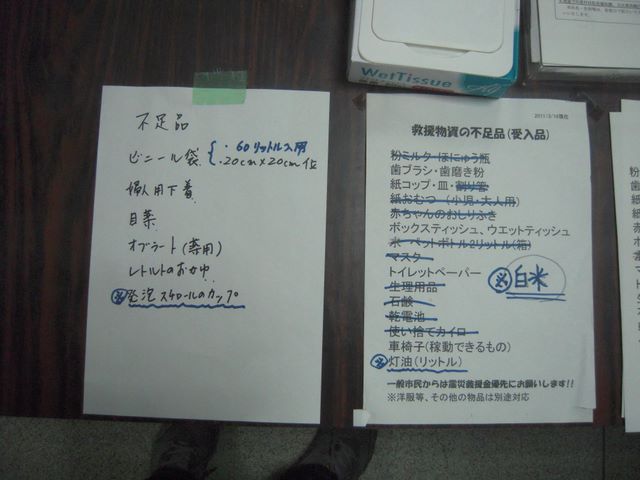 WetTissue
不足品
ビニール袋 ・60リットル入用
・20cm×20cm位
婦人用下着
目薬
オブラート(薬用)
レトルトのおかゆ
※発泡スチロールのカップ
救援物資の不足品(受入品)
粉ミルク・ほにゅう瓶
歯ブラシ・歯磨き粉
紙コップ・皿・割り箸
紙おむつ (小児・大人用)
赤ちゃんのおしりふき
ボックスティッシュ、ウエットティッシュ
水 ペットボトル2リットル(箱)
マスク
トイレットペーパー
※白米
生理用品
石鹸
乾電池
使い捨てカイロ
車椅子(稼動できるもの)
※灯油(リットル)
一般市民からは震災義援金優先にお願いします!!
※洋服等、その他の物品は別途対応